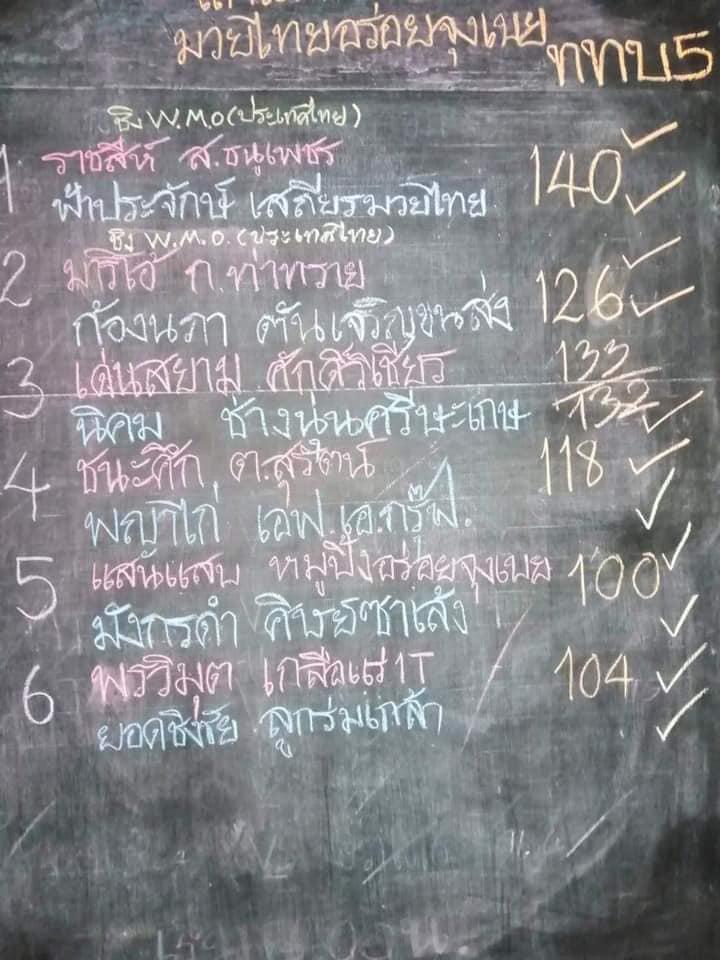 มวยไทยอร่อยจุงเบย ททบ5
ชิง W.M.O (ประเทศไทย)
1 ราชสีห์ ส.ธนูเพชร 140
ฟ้าประจักษ์ เสถียรมวยไทย
ชิง W.M.O. (ประเทศไทย)
2 มาริโอ้ ก.ท่าทราย 126
ก้องนภา ตันเจริญขนส่ง
3 เด่นสยาม ศักดิ์วิเชียร 133
นิคม ช่างนุ่นศรีษะเกษ 132
4 ชนะศึก ต.สุรัตน์ 118
พญาไก่ เอฟ.เอ.กรุ๊ฟ.
5 แสนแสบ หมูปิ้งอร่อยจุงเบย 100
มังกรดำ ศิษย์ซาเล้ง
6 พรวิมุต เกลือแร่ IT 104
ยอดชิงชัย ลูกร่มเกล้า